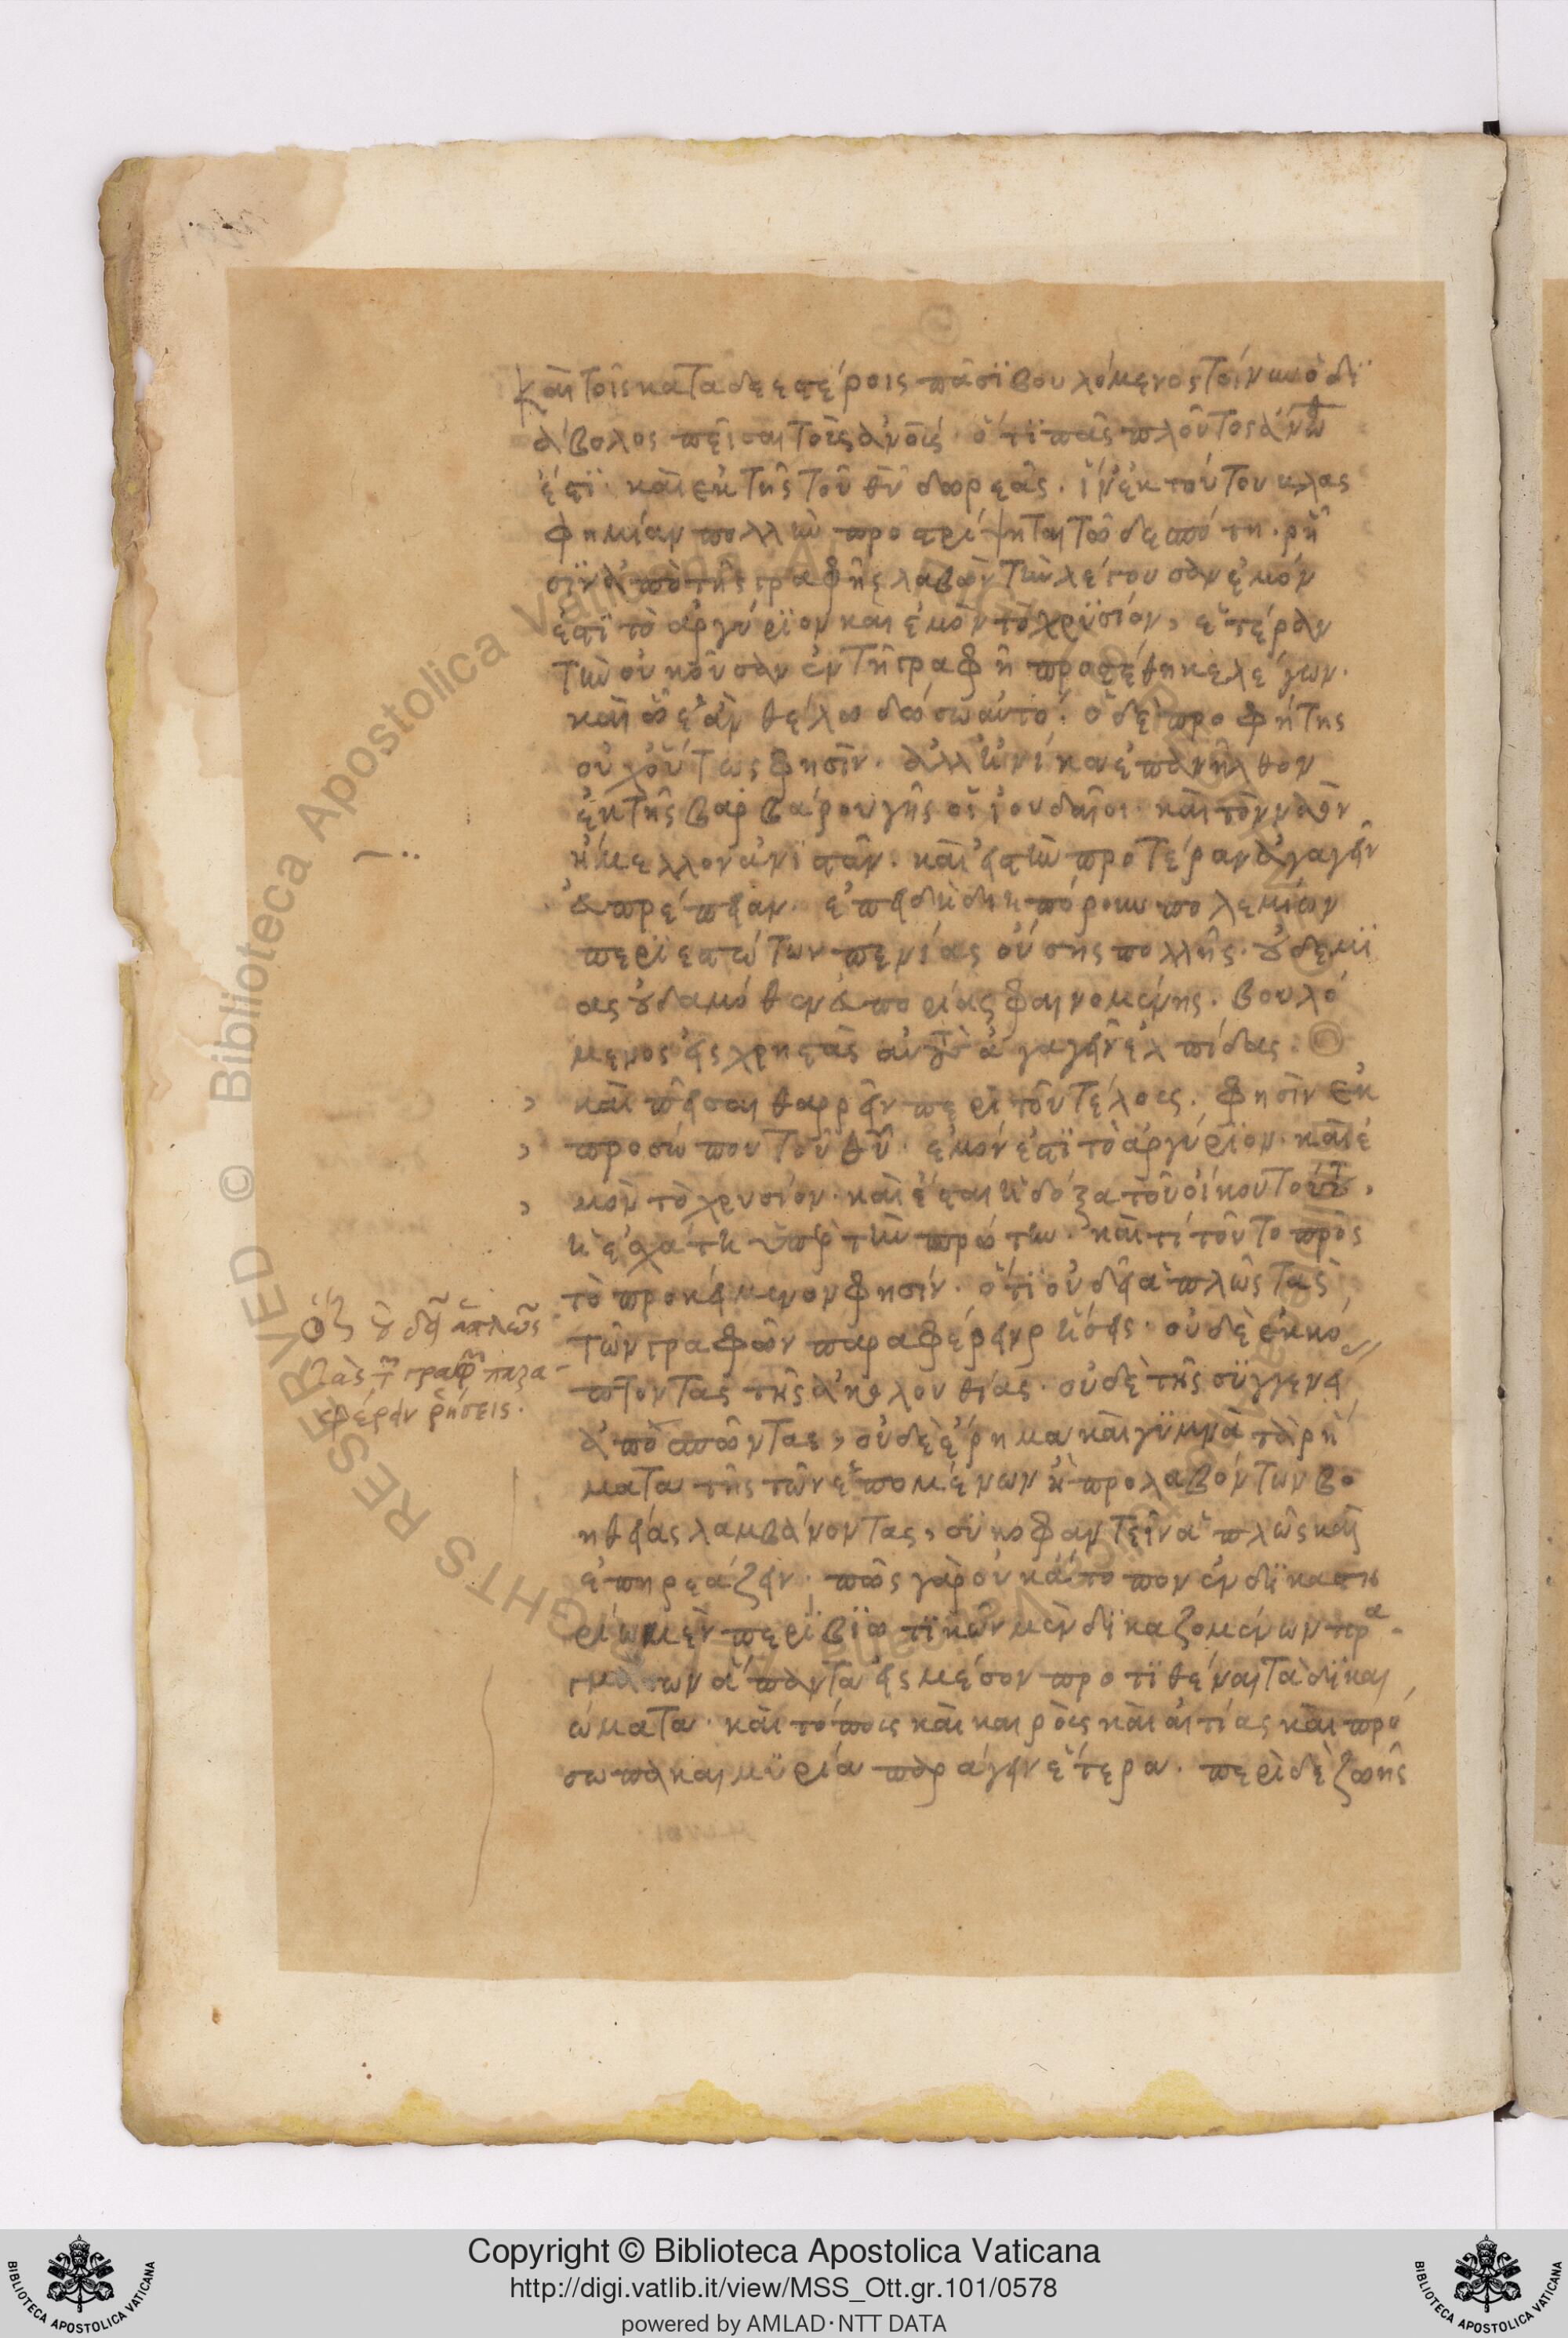 καὶ τοῖς καταδεεστέροις πᾶσι βουλόμενος τοίνυν ὁ δι
άβολος πεῖσαι τοὺς ἀνους ὅτι πᾶς πλοῦτος ἀνω
ἐστι καὶ ἐκ τῆς τοῦ θυ δωρεᾶς. ἵν' ἐκ τούτου βλας
φημίαν πολλὴν προστρίψηται τῶ δεσπότη. ρῆ
σιν ἀπὸ τῆς γραφῆς λαβὼν τὴν λέγουσαν ἐμόν
ἐστι τὸ ἀργύριον καὶ ἐμὸν τὸ χρυσίον, ἑτέραν
τὴν οὐκ οὖσαν ἐν τῆ γραφῆ προσέθηκε λέγων.
καὶ ὧ ἐὰν θέλω δώσω αὐτό. ὁ δὲ προφήτης
οὐχ οὕτως φησίν. ἀλλ' ἡνίκα ἐπανῆλθον
ἐκ τῆς βαρβάρου γῆς οἱ ἰουδαῖοι καὶ τὸν ναὸν
ἤμελλον ἀνιστᾶν. καὶ εἰς τὴν προτέραν ἀγαγεῖν
εὐπρέπειαν. ἐπειδὴ διηπόρουν πολεμίων
περιεστώτων πενίας οὔσης πολλῆς. οὐδεμι
ας οὐδαμόθεν εὐπορίας φαινομένης. βουλό
μενος εἰς χρηστὰς αὐτοὺς ἀγαγεῖν ἐλπίδας.
καὶ πεῖσαι θαρρεῖν περὶ τοῦ τέλους. φησὶν ἐκ
προσώπου τοῦ θυ. ἐμόν ἐστι τὸ ἀργύριον. καὶ ἐ
μὸν τὸ χρυσίον. καὶ ἔσται ἡ δόξα τοῦ οἴκου τούτου,
ἡ ἐσχάτη ὑπὲρ τὴν πρώτην. καὶ τί τοῦτο πρὸς
τὸ προκείμενον φησίν. ὅτι οὐ δεῖ ἁπλῶς τὰς
τῶν γραφῶν παραφέρειν ρήσεις. οὐδὲ ἐκκό
πτοντας τῆς ἀκολουθίας. οὐδὲ τῆς συγγενεί
ἀποσπῶντας, οὐδὲ ἔρημα καὶ γυμνὰ τὰ ρή
ματα τῆς τῶν ἑπομένων ἢ προλαβόντων βο
ηθείας λαμβάνοντας, συκοφαντεῖν ἁπλῶς καὶ
ἐπηρεάζειν. πῶς γὰρ οὐκ ἄτοπον ἐν δικαστη
ρίω μὲν περὶ βιωτικῶν μὲν δικαζομένων πρα
γμάτων ἅπαντα εἰς μέσον προτιθέναι τὰ δικαι
ώματα. καὶ τόπους καὶ καιροὺς καὶ αἰτίας καὶ πρό
σωπα καὶ μυρία παράγειν ἕτερα. περὶ δὲ ζωῆς
ὅτι οὐ δεῖ ἁπλῶς
τὰς τῶν γραφῶν παρα
φέρειν ρήσεις.
© Biblioteca Apostolica Vaticana
Copyright © Biblioteca Apostolica Vaticana
http://digi.vatlib.it/view/MSS_Ott.gr.101/0578
powered by AMLAD·NTT DATA
BIBLIOTECA APOSTOLICA VATICANA
BIBLIOTECA APOSTOLICA VATICANA